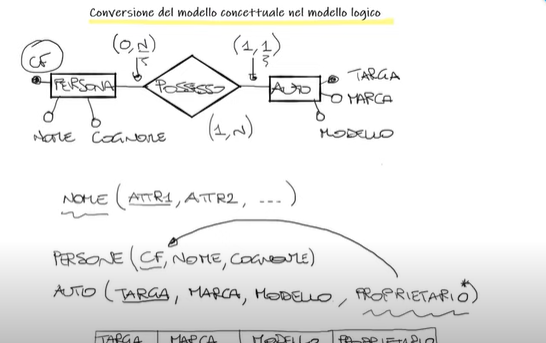 Conversione del modello concettuale nel modello logico
(0,N) (1,1)
CF
PERSONA POSSESSO AUTO TARGA
MARCA
NOME COGNOME (1,N) MODELLO
NOME (ATTR1, ATTR2, ...)
PERSONE (CF, NOME, COGNOME)
AUTO (TARGA, MARCA, MODELLO, PROPRIETARIO*)
TARGA MARCA MODELLO PROPRIETARIO